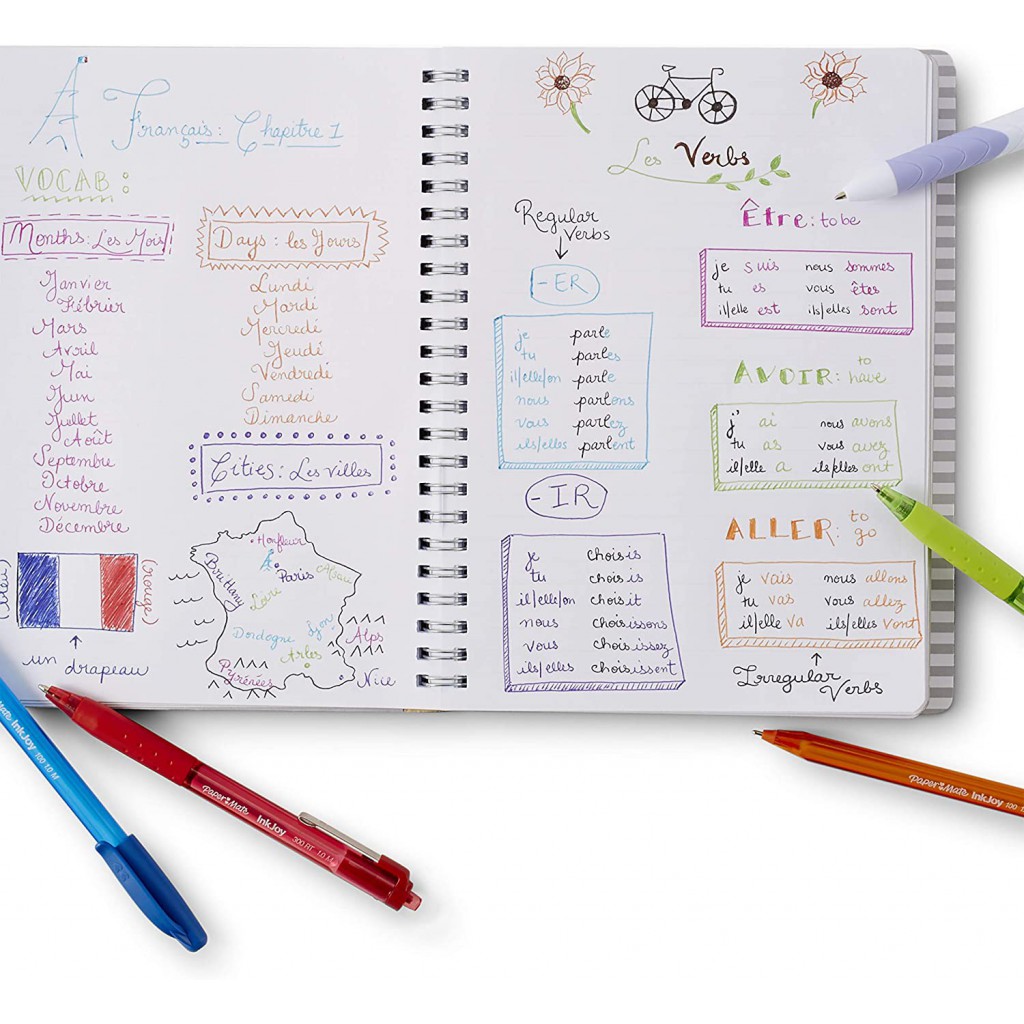 Français: Chapitre 1
VOCAB:
Months: Les Mois
Janvier
Fébrier
Mars
Avril
Mai
Juin
Juillet
Août
Septembre
Octobre
Novembre
Décembre
Days: les Jours
Lundi
Mardi
Mercredi
Jeudi
Vendredi
Samedi
Dimanche
Cities: Les villes
Honfleur
Brittany
Paris
Loire
Dordogne
Lyon
Alps
Arles
Pyrénées
Nice
(bleu)
(rouge)
un drapeau
Les Verbs
Regular
Verbs
-ER
je parle
tu parles
il/elle/on parle
nous parlons
vous parlez
ils/elles parlent
-IR
je choisis
tu choisis
il/elle/on choisit
nous choisissons
vous choisissez
ils/elles choisissent
Être: to be
je suis nous sommes
tu es vous êtes
il/elle est ils/elles sont
AVOIR: to have
j' ai nous avons
tu as vous avez
il/elle a ils/elles ont
ALLER: to go
je vais nous allons
tu vas vous allez
il/elle va ils/elles vont
Irregular
Verbs
Mate InkJoy 100 1.0 M
Paper Mate InkJoy 300 RT 1.0 M
Paper Mate InkJoy 100